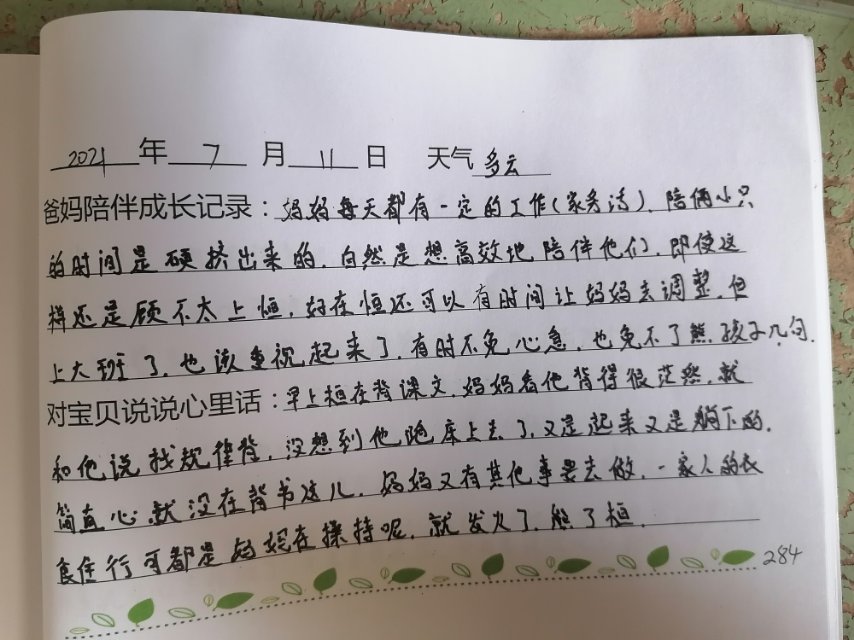 2021年7月11日 天气多云
爸妈陪伴成长记录：妈妈每天都有一定的工作(家务活)，陪俩小只
的时间是硬挤出来的，自然是想高效地陪伴他们，即使这
样还是顾不太上恒，好在恒还可以有时间让妈妈去调整，但
上大班了，也该重视起来了，有时不免心急，也免不了熊孩子几句．
对宝贝说说心里话：早上桓在背课文，妈妈看他背得很茫然，就
和他说找规律背，没想到他跑床上去了，又是起来又是躺下的，
简直心就没在背书这儿，妈妈又有其他事要去做，一家人的衣
食住行可都是妈妈在操持呢，就发火了，熊了桓．
284